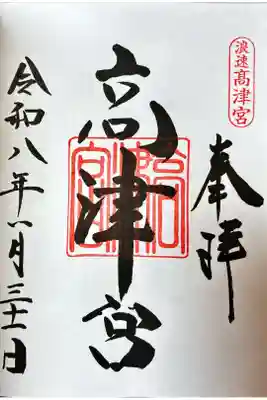 浪速高津宮
奉拝
高津宮
令和八年八月三十一日